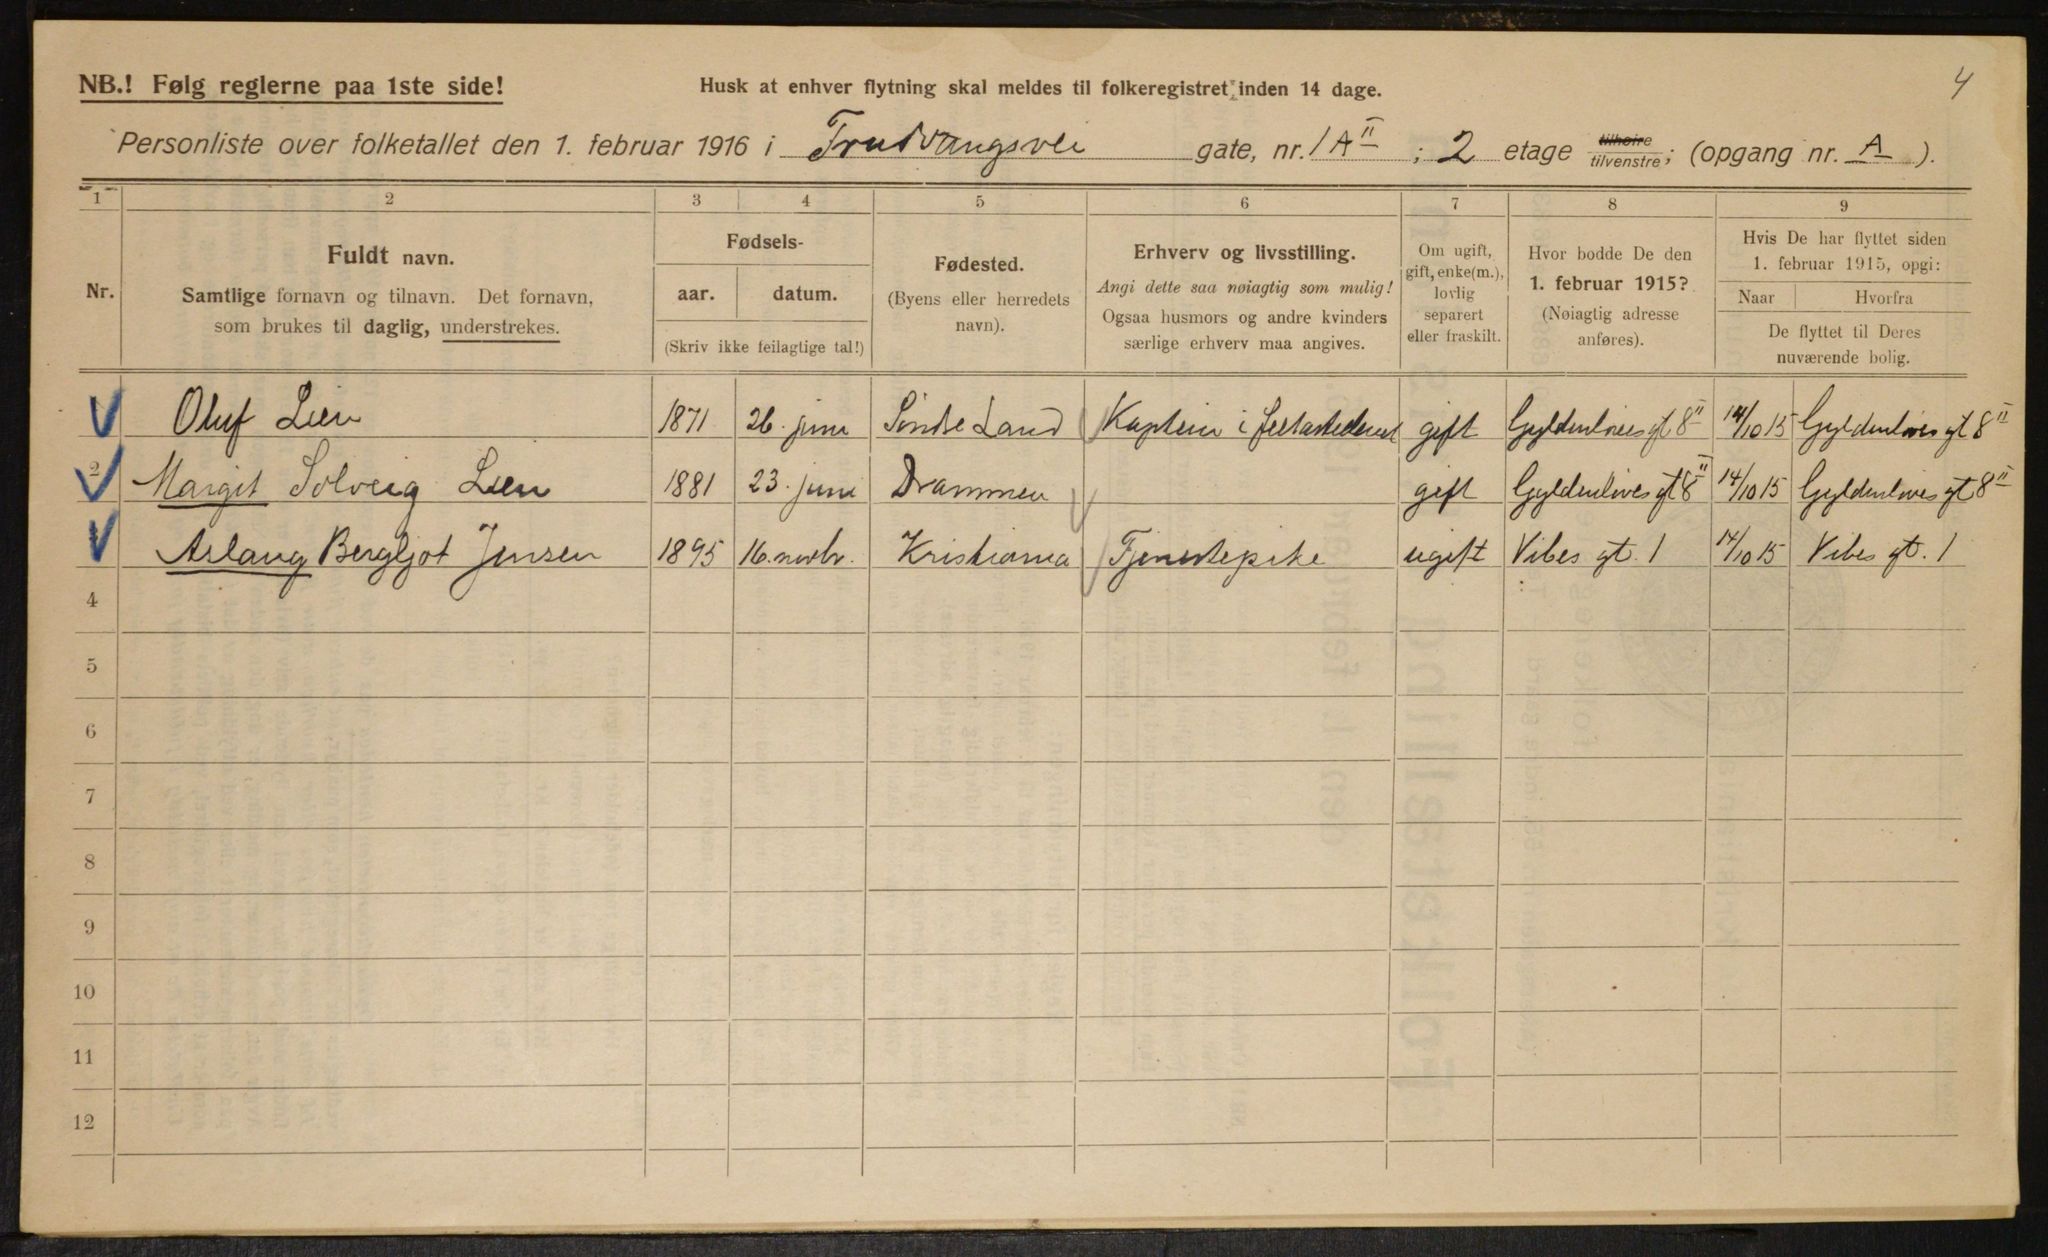 4
NB.! Følg reglerne paa 1ste side!
Husk at enhver flytning skal meldes til folkeregistret inden 14 dage.
Personliste over folketallet den 1. februar 1916 i Trudvangsvei gate, nr. 1 A II ; 2 etage tilhøire tilvenstre; (opgang nr. A ).
1 2 3 4 5 6 7 8 9
Nr.
Fuldt navn.
Samtlige fornavn og tilnavn. Det fornavn,
som brukes til daglig, understrekes.
Fødsels-
aar. datum.
(Skriv ikke feilagtige tal!)
Fødested.
(Byens eller herredets
navn).
Erhverv og livsstilling.
Angi dette saa nøiagtig som mulig!
Ogsaa husmors og andre kvinders
særlige erhverv maa angives.
Om ugift,
gift, enke(m.),
lovlig
separert
eller fraskilt.
Hvor bodde De den
1. februar 1915?
(Nøiagtig adresse
anføres).
Hvis De har flyttet siden
1. februar 1915, opgi:
Naar Hvorfra
De flyttet til Deres
nuværende bolig.
Oluf Lien 1871 26. juni Søndre Land Kaptein i gift Gyldenløves gt 8 II 14/10 15 Gyldenløves gt 8 II
2 Margit Solveig Lien 1881 23. juni Drammen gift Gyldenløves gt 8 II 14/10 15 Gyldenløves gt 8 II
Aslaug Bergljot Jensen 1895 16. novbr. Kristiania Tjenestepike ugift Vibes gt. 1 14/10 15 Vibes gt. 1
4
5
6
7
8
9
10
11
12